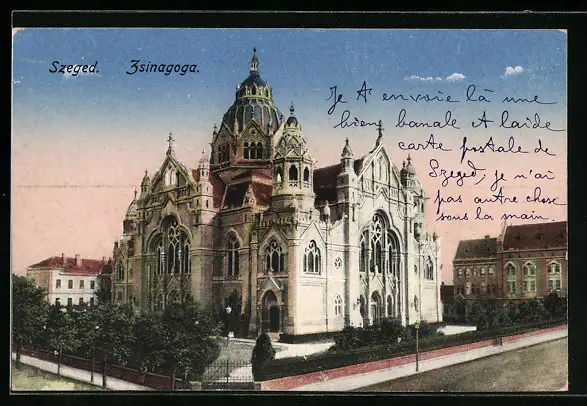 Szeged. Zsinagoga.
Je t'envoie là une
bien banale et laide
carte postale de
Szeged, je n'ai
pas autre chose
sous la main.